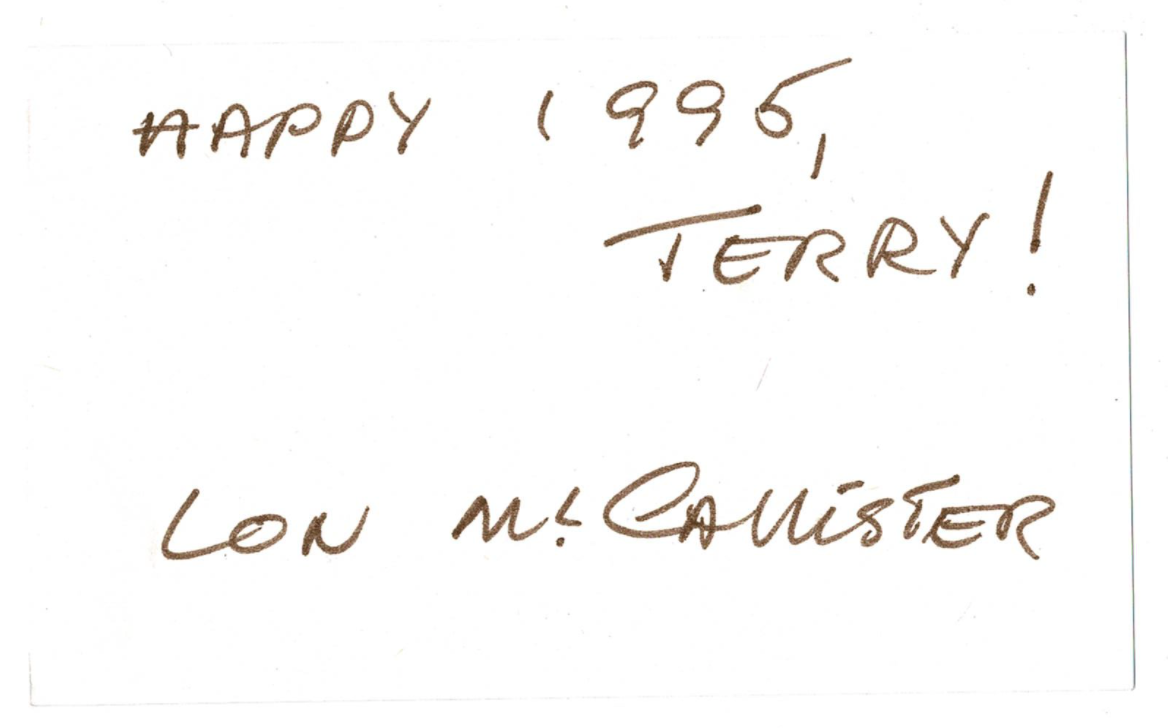 HAPPY 1995,
TERRY!
LON McCALLISTER